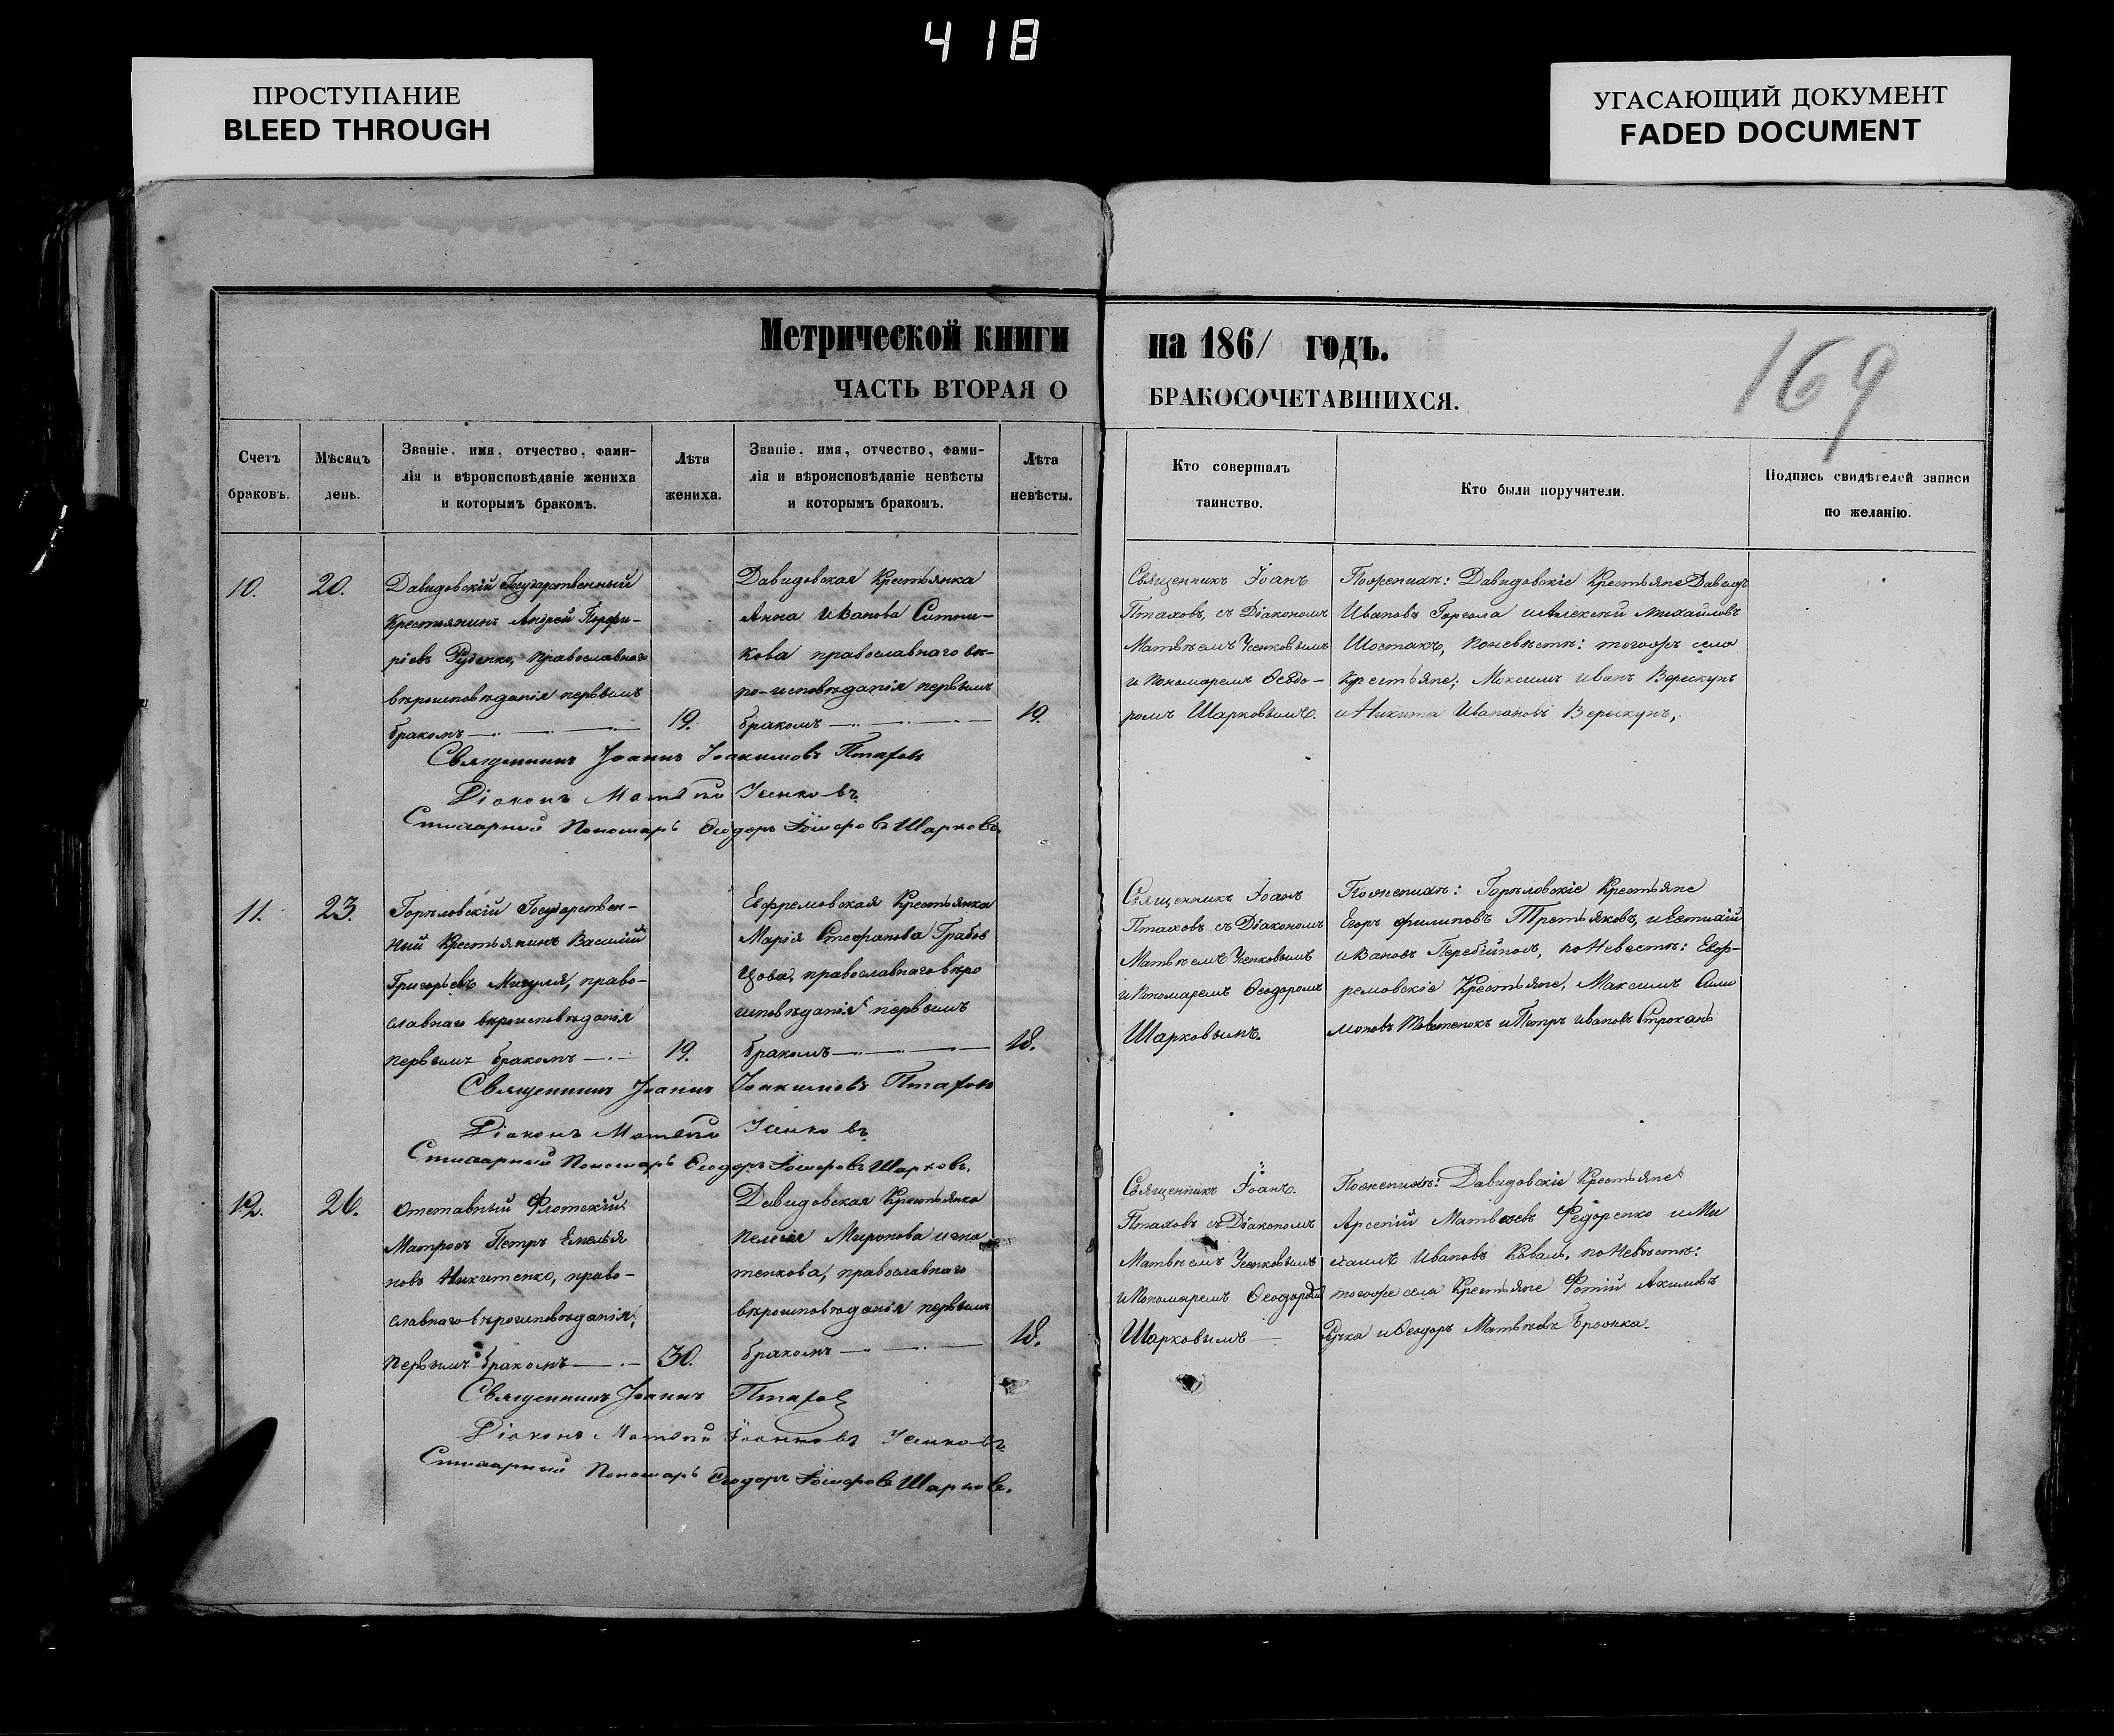 418
ПРОСТУПАНИЕ
BLEED THROUGH
УГАСАЮЩИЙ ДОКУМЕНТ
FADED DOCUMENT
Метрической книги на 1861 годъ.
169
ЧАСТЬ ВТОРАЯ О БРАКОСОЧЕТАВШИХСЯ.
Счетъ
браковъ.
Мѣсяцъ
день.
Званіе, имя, отчество, фами-
лія и вѣроисповѣданіе жениха
и которымъ бракомъ.
Лѣта
жениха.
Званіе, имя, отчество, фами-
лія и вѣроисповѣданіе невѣсты
и которымъ бракомъ.
Лѣта
невѣсты.
Кто совершалъ
таинство.
Кто были поручители.
Подпись свидѣтелей записи
по желанію.
10.
20.
Давидовскій Государственный
Крестьянинъ Андрей Порфи-
ріевъ Руденко, православнаго
вѣроисповѣданія первымъ
бракомъ
19.
Давидовская Крестьянка
Анна Иванова Ситни-
кова православнаго вѣ-
ро-исповѣданія первымъ
бракомъ
19.
Священникъ Іоанъ
Птаховъ, съ Діакономъ
Матвѣемъ Усенковымъ
и Пономаремъ Ѳеодо-
ромъ Шарковымъ.
По женихѣ: Давидовскіе Крестьяне Давидъ
Ивановъ Горгола и Алексѣй Михайловъ
Шостакъ, по невѣстѣ: того же села
Крестьяне; Максимъ Иванъ Верескунъ
и Никита Ивановъ Верескунъ,
Священникъ Іоаннъ Іоакимовъ Птаховъ
Діаконъ Матвѣй Усенковъ
Стихарный Пономарь Ѳеодоръ Іосифовъ Шарковъ.
11.
23.
Горѣловскій Государствен-
ный Крестьянинъ Василій
Григорьевъ Мигуля, право-
славнаго вѣроисповѣданія
первымъ бракомъ
19.
Евфремовская Крестьянка
Марія Стефанова Грабов
цова, православнаго вѣро
исповѣданія первымъ
бракомъ
18.
Священникъ Іоанъ
Птаховъ съ Діакономъ
Матвѣемъ Усенковымъ
и Пономаремъ Ѳеодоромъ
Шарковымъ.
По женихѣ: Горѣловскіе Крестьяне
Егоръ Филиповъ Третьяковъ, и Евтихій
Ивановъ Перебійносъ, по Невѣстѣ: Евф-
ремовскіе Крестьяне, Максимъ Сими
моновъ и Петръ Ивановъ
Священникъ Іоаннъ Іоакимовъ Птаховъ
Діаконъ Матвѣй Усенковъ
Стихарный Пономарь Ѳеодоръ Іосифовъ Шарковъ.
12.
26.
Отставный Флотскій
Матросъ Петръ Емелья
новъ Никитенко, право-
славнаго вѣроисповѣданія,
первымъ бракомъ
30.
Давидовская Крестьянка
Пелагія Миронова Игна
тенкова, православнаго
вѣроисповѣданія первымъ
бракомъ
18.
Священникъ Іоанъ.
Птаховъ съ Діакономъ
Матвѣемъ Усенковымъ
и Пономаремъ Ѳеодоромъ
Шарковымъ
По женихѣ: Давидовскіе Крестьяне
Арсеній Матвѣевъ Федоренко и Ми
хаилъ Ивановъ Коваль, по Невѣстѣ:
того же села Крестьяне Фотій Акимовъ
и Ѳеодоръ Матвѣевъ
Священникъ Іоаннъ Птаховъ
Діаконъ Матвѣй Іоанновъ Усенковъ
Стихарный Пономарь Ѳеодоръ Іосифовъ Шарковъ.